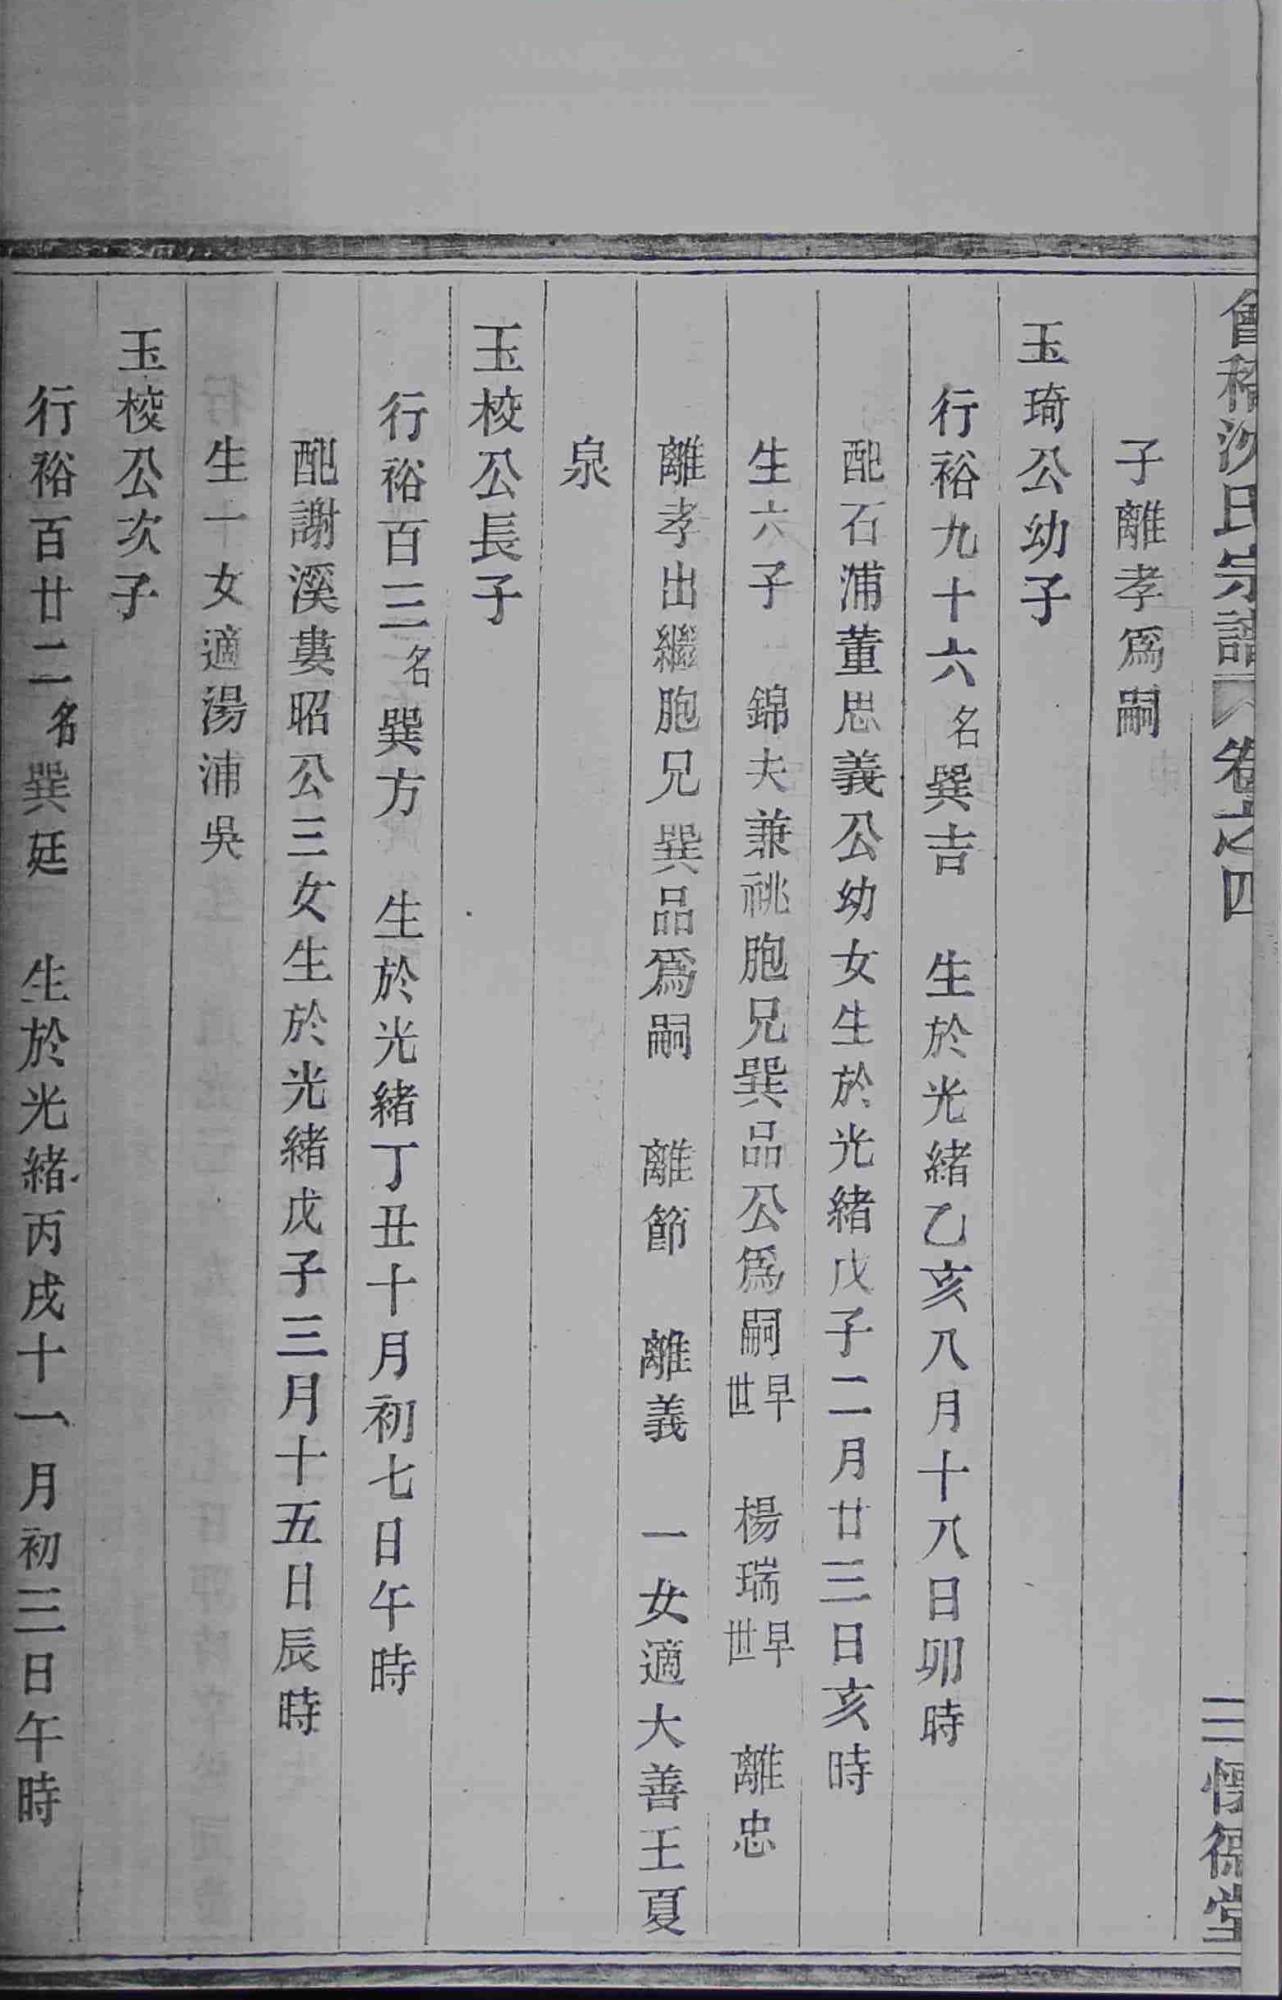 會稽沈氏宗譜 卷之四 二 懷德堂
子離孝爲嗣
玉琦公幼子
行裕九十六名巽吉 生於光緒乙亥八月十八日卯時
配石浦董思義公幼女生於光緒戊子二月廿三日亥時
生六子 錦夫兼祧胞兄巽品公爲嗣早世 楊瑞早世 離忠
離孝出繼胞兄巽品爲嗣 離節 離義 一女適大善王夏
泉
玉校公長子
行裕百三名巽方 生於光緒丁丑十月初七日午時
配謝溪婁昭公三女生於光緒戊子三月十五日辰時
生一女適湯浦吳
玉校公次子
行裕百廿二名巽廷 生於光緒丙戌十一月初三日午時